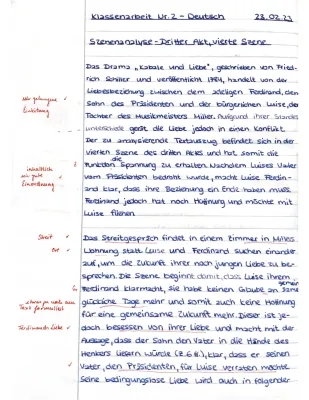 Klassenarbeit Nr. 2 - Deutsch 23.02.21
Szenenanalyse - Dritter Akt, vierte Szene
Das Drama „Kabale und Liebe", geschrieben von Fried-
rich Schiller und veröffentlicht 1784, handelt von der
Liebesbeziehung zwischen dem adeligen Ferdinand, dem
Sohn des Präsidenten und der bürgerlichen Luise, der
Tochter des Musikmeisters Miller. Aufgrund ihrer Standes
unterschiede gerät die Liebe jedoch in einen Konflikt.
Der zu analysierende Textauszug befindet sich in der
vierten Szene des dritten Aktes und hat somit die
Funktion die Spannung zu erhalten. Nachdem Luises Vater
vom Präsidenten bedroht wurde, macht Luise Ferdin-
and klar, dass ihre Beziehung ein Ende haben muss.
Ferdinand jedoch hat noch Hoffnung und möchte mit
Luise fliehen.
Das Streitgespräch findet in einem Zimmer in Millers
Wohnung statt. Luise und Ferdinand suchen einander
auf, um die Zukunft ihrer noch jungen Liebe zu be-
sprechen. Die Szene beginnt damit, dass Luise ihrem
Ferdinand klarmacht, sie habe keinen Glaube an
glückliche Tage mehr und somit auch keine Hoffnung
für eine gemeinsame Zukunft mehr. Dieser ist je-
doch besessen von ihrer Liebe und macht mit der
Aussage, dass der Sohn den Vater in die Hände des
Henkers liefern würde (Z.6 f.), klar, dass er seinen
Vater, den Präsidenten, für Luise verraten möchte.
Seine bedingungslose Liebe wird auch in folgender
Einleitung
inhaltlich
sehr gute
Einordnung
Streit
Ort
Ferdinands Liebe